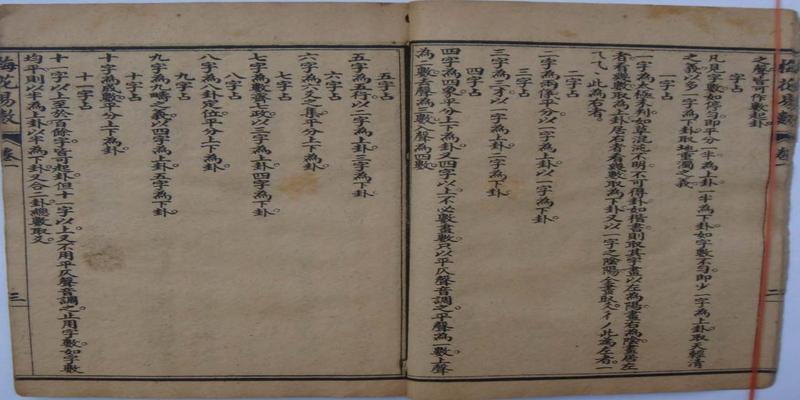 之聲皆可作數起卦
字占
凡見字數如停勻即平分一半為上卦一半為下卦如字數不勻即少一字為上卦取天輕清
之義以多一字為下卦取地重濁之義
一字占
一字為太極未判如草混沌不明不可得卦如楷書則取其字畫以左為陽畫右為陰畫居左
者看幾數取為上卦居右者看幾數取為下卦又以一字之陰陽全畫取爻彳丿此為左者一
乀乁丶此為右者
二字占
二字為兩儀平分以一字為上卦以一字為下卦
三字占
三字為三才以一字為上卦二字為下卦
四字占
四字為四象平分上下為卦又四字以上不必數畫數只以平仄聲音調之平聲為一數上聲
為二數去聲為三數入聲為四數
五字占
五字為五行以二字為上卦三字為下卦
六字占
六字為六爻之集平分上下為卦
七字占
七字為數齊七政以三字為上卦四字為下卦
八字占
八字為八卦定位平分上下為卦
九字占
九字為九疇之義以四字為上卦五字為下卦
十字占
十字為成數平分上下為卦
十一字占
十一字以上至於百餘字皆可起卦但十一字以上又不用平仄聲音調之止用字數如字數
均平則以半為上卦以半為下卦又合二卦總數取爻
梅花易數
卷一
三
梅花易數
卷一
二